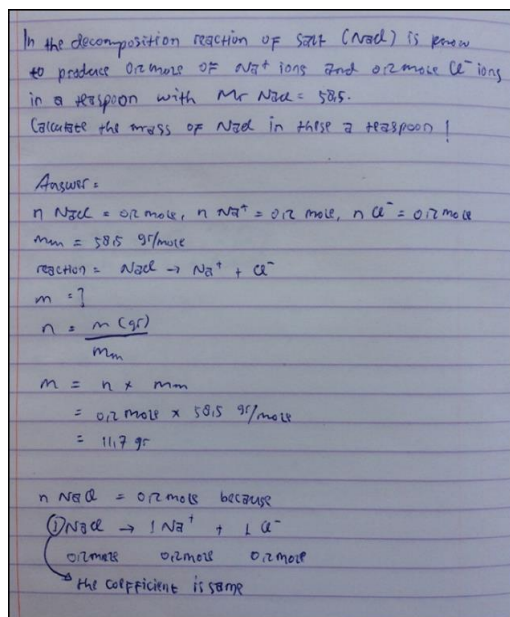 In the decomposition reaction of salt (NaCl) is know
to produce 0,2 mole of Na⁺ ions and 0,2 mole Cl⁻ ions
in a teaspoon with Mr NaCl = 58,5.
Calculate the mass of NaCl in these a teaspoon !
Answer =
n NaCl = 0,2 mole, n Na⁺ = 0,2 mole, n Cl⁻ = 0,2 mole
mm = 58,5 gr/mole
reaction = NaCl → Na⁺ + Cl⁻
m = ?
n = m (gr)
mm
m = n x mm
= 0,2 mole x 58,5 gr/mole
= 11,7 gr
n NaCl = 0,2 mole because
1 NaCl → 1 Na⁺ + 1 Cl⁻
0,2 mole 0,2 mole 0,2 mole
the coefficient is same